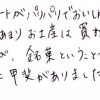 ートがパリパリでおいし
あまり お土産は 買わ
が、銘菓ということ
に甲斐がありました